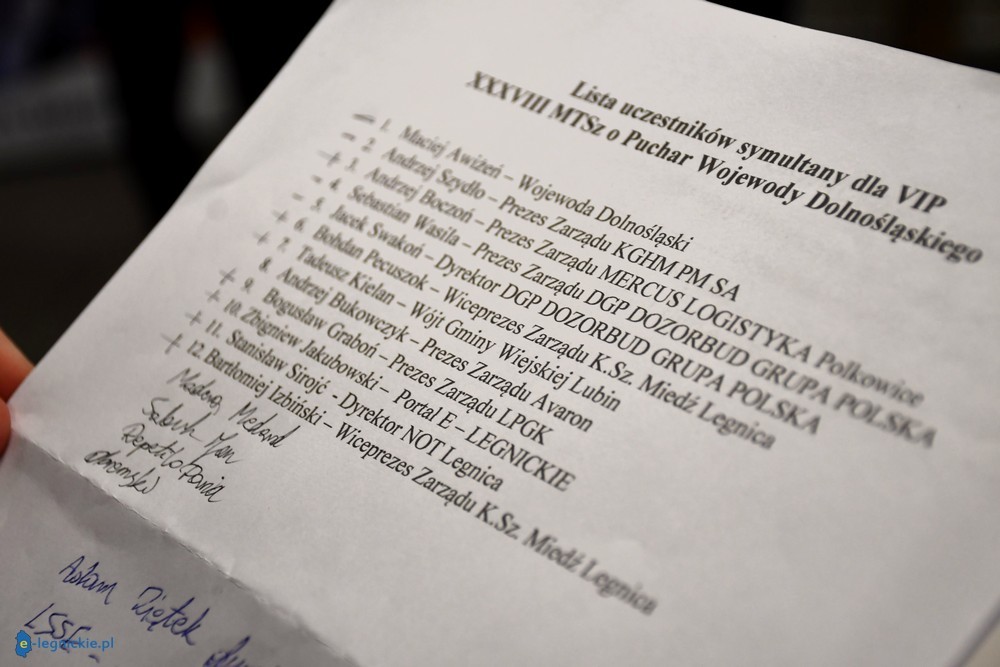 Lista uczestników symultany dla VIP
XXXVIII MTSz o Puchar Wojewody Dolnośląskiego
– 1. Maciej Awiżeń – Wojewoda Dolnośląski
– 2. Andrzej Szydło – Prezes Zarządu KGHM PM SA
+ 3. Andrzej Boczoń – Prezes Zarządu MERCUS LOGISTYKA Polkowice
– 4. Sebastian Wasila – Prezes Zarządu DGP DOZORBUD GRUPA POLSKA
– 5. Jacek Swakoń – Dyrektor DGP DOZORBUD GRUPA POLSKA
+ 6. Bohdan Pecuszok – Wiceprezes Zarządu K.Sz. Miedź Legnica
+ 7. Tadeusz Kielan – Wójt Gminy Wiejskiej Lubin
8. Andrzej Bukowczyk – Prezes Zarządu Avaron
+ 9. Bogusław Graboń – Prezes Zarządu LPGK
+ 10. Zbigniew Jakubowski – Portal E – LEGNICKIE
+ 11. Stanisław Sirojć - Dyrektor NOT Legnica
+ 12. Bartłomiej Izbiński – Wiceprezes Zarządu K.Sz. Miedź Legnica
Adam Piątek
LSSE -
e-legnickie.pl